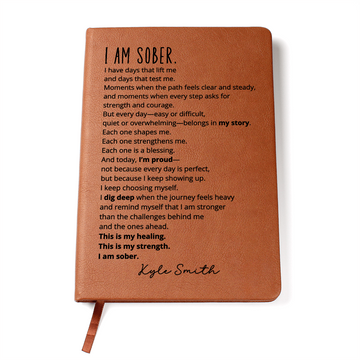 I AM SOBER.
I have days that lift me
and days that test me.
Moments when the path feels clear and steady,
and moments when every step asks for
strength and courage.
But every day—easy or difficult,
quiet or overwhelming—belongs in my story.
Each one shapes me.
Each one strengthens me.
Each one is a blessing.
And today, I'm proud—
not because every day is perfect,
but because I keep showing up.
I keep choosing myself.
I dig deep when the journey feels heavy
and remind myself that I am stronger
than the challenges behind me
and the ones ahead.
This is my healing.
This is my strength.
I am sober.
Kyle Smith